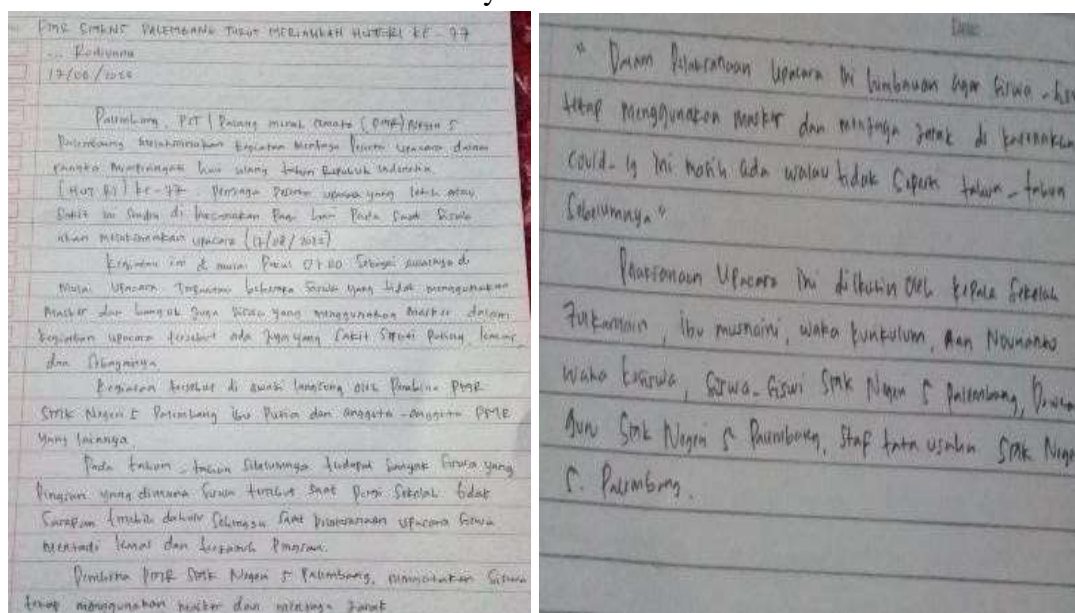 PMR SMKN5 PALEMBANG TURUT MERIAHKAH HUT RI KE - 77
... Rodiyana
17/08/2022
Palembang, PST | Palang merah remaja (PMR) Negeri 5
Palembang melaksanakan kegiatan menjaga Peserta upacara dalam
rangka memperingati hari ulang tahun Republik Indonesia
(HUT RI) ke-77. Penjaga Peserta upacara yang lelah atau
Sakit ini Sendiri di laksanakan Pagi hari Pada Saat Siswa
akan melaksanakan upacara (17/08/2022)
Kegiatan ini di mulai Pukul 07.00 Sebagai awalnya di
mulai Upacara. beberapa Siswa yang tidak menggunakan
Masker dan banyak Juga Siswa yang menggunakan Masker dalam
kegiatan upacara tersebut ada Juga yang Sakit Seperti Pusing, lemas,
dan Sebagainya
Kegiatan tersebut di awasi langsung oleh Pembina PMR
SMK Negeri 5 Palembang ibu Puria dan anggota-anggota PMR
Yang lainnya
Pada tahun-tahun Sebelumnya terdapat banyak Siswa yang
Pingsan yang dimana Siswa tersebut Saat Pergi Sekolah tidak
Sarapan terlebih dahulu Sehingga Saat pelaksanaan upacara Siswa
menjadi lemas dan Pingsan.
Pembina PMR SMK Negeri 5 Palembang, Siswa
tetap menggunakan masker dan menjaga Jarak
Date:
" Dalam Pelaksanaan Upacara ini himbauan agar Siswa -
tetap menggunakan masker dan menjaga Jarak di karenakan
covid-19 ini masih ada walau tidak Seperti tahun-tahun
Sebelumnya "
Pelaksanaan Upacara ini diikutin Oleh kepala Sekolah
Zulkarnain, ibu musnaini, waka kurikulum, Aan Novrianko
Waka kesiswa, Siswa-Siswi Smk Negeri 5 Palembang,
guru Smk Negeri 5 Palembang, Staf tata usaha Smk
5. Palembang.